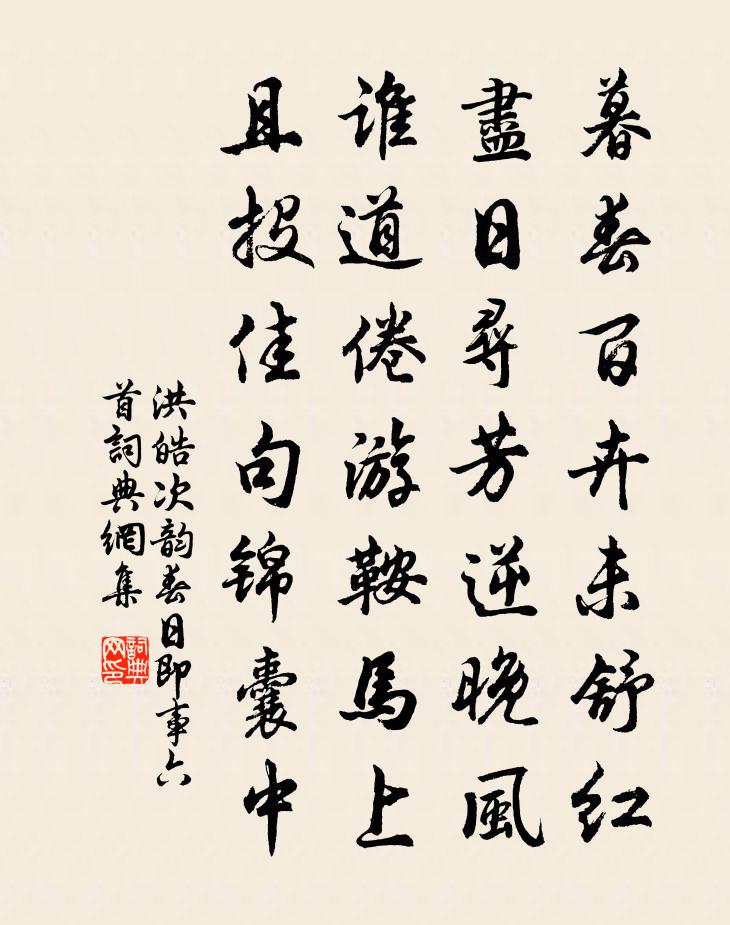 暮春百卉未舒红
盡日尋芳逆晚風
谁道倦游鞍馬上
且投佳句锦囊中
洪皓次韵春日即事六
首詞典網集
詞典
网印